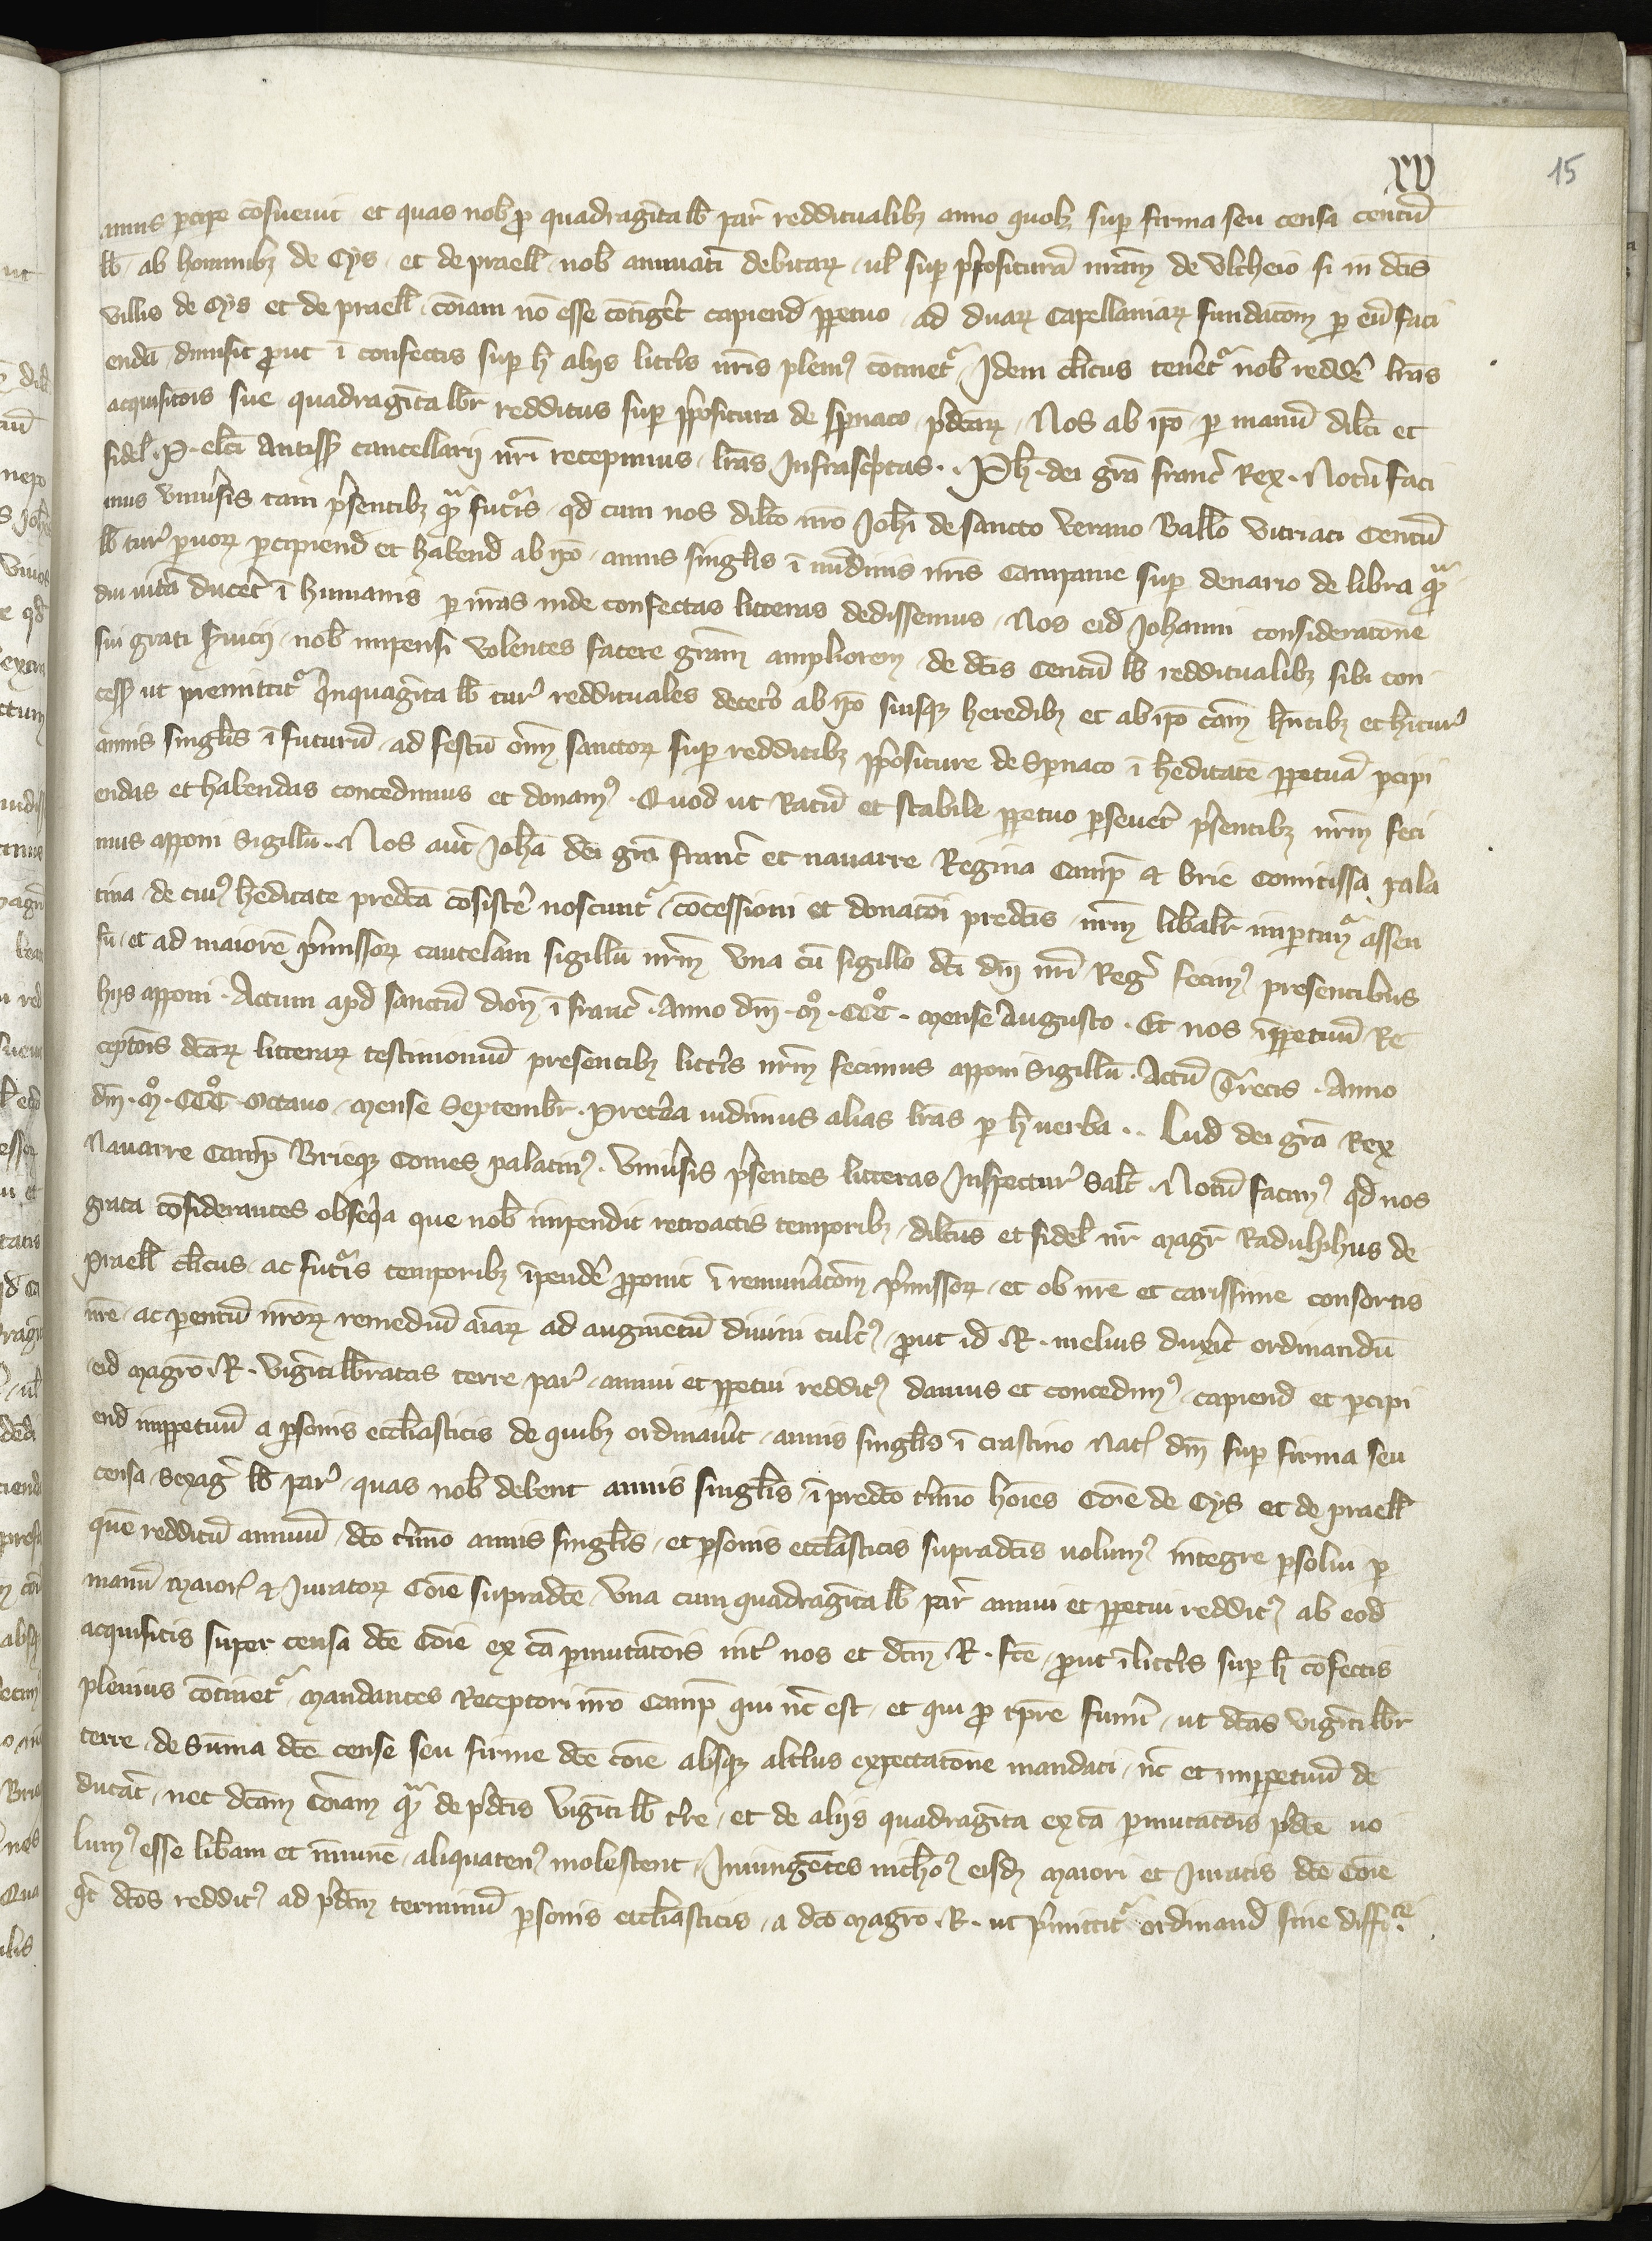 XV
15
annis percipe cōsuevit et quas nob̄ pro quadraginta lb̄ par̄ redditualibȝ anno quolibȝ super firma seu censa centū
lb̄ ab hominibȝ de Cys et de praell̄ nob̄ annuatī debitarꝝ ul̄ sup p̄posituram nr̄am de Vlcheio si in dcīs
villis de Cys et de praell̄ cōīam nō esse cōtiger̄t capiend̄ ꝑpetuo ad duarꝝ Capellaniarꝝ fundacōm ꝑ eū faci
endā dimisit ꝓut ī confectis sup h̄ alijs litt̄is nr̄is pleni⁹ cōtinet᷑ Idem cl̄icus tenet᷑ nob̄ redde̅ lr̄as
acquisicōis sue quadragīnta lbr̄ redditus sup p̄positura de Spnaco p̄dcārꝝ Nos ab ip̄o ꝑ manū dilc̄i et
fidel̄ P. elc̄i Antiss̄ cancellarij nr̄i recepimus lr̄as Infrasc̄ptas. Ph̄ dei grā franc̄ Rex. Notū faci
mus vniu̅sis tam p̄sentibȝ q̄ᵃ futur̄is qd cum nos dilc̄o nr̄o Joh̄i de sancto Verano Ballo Vitriaci Centū
lb̄ tur̄ ꝑuorꝝ percipiend̄ et habend̄ ab ip̄o annis singl̄is ī nūdinis nr̄is Campanie sup denario de libra q̄ᵃ
diu uitā ducet̄ ī humanis ꝑ nr̄as inde confectas litteras dedissemus Nos eid̄ Johanni consideratōne
sui grati s̄uicij nob̄ impensi volentes facere grām ampliorem de dcīs Centū lb̄ redditualibȝ sibi con
cess̄ ut premittit᷑ q̄nquagīta lb̄ tur̄ reddituales decet̄o ab ip̄o suisqȝ heredibȝ et ab ip̄o cām hn̄tibȝ et hītur̄
annis singl̄is ī futurū ad festū om̄ sanctorꝝ sup redditibȝ p̄positure de Spnaco ī h̄editatē ꝑpetuā ꝑcipi
endas et habendas concedimus et donam⁹. Quod ut Ratū et stabile ꝑpetuo perseuet̄ p̄sentibȝ nr̄m feci
mus apponi Sigillū. Nos aut̄ Joh̄a dei grā franc̄ et nauarre Regina Camp̄ et brie Comitissa pala
tina de cui⁹ h̄editate predc̄a cōsiste̅ noscunt᷑ cōcessioni et donacōi predc̄is nr̄m lib̄alr̄ impertim᷑ assen
sū et ad maiorē p̄missorꝝ cautelam sigillū nr̄m vna cū sigillo dc̄i dn̄i nr̄i Reg̅ fecim⁹ presentibus
hijs apponi. Actum apd̄ sanctū dion̄ ī franc̄. Anno dn̄i. M°. CCC°. Mense Augusto. Et nos īperpetuū Re
ceptōis dc̄arꝝ litterarꝝ testimoniū presentibȝ litt̄is nr̄m fecimus apponi Sigillū. Actū Trecis. Anno
dn̄i. M°. CCC° Octauo mense Septembr̄. Pretēa uidimus alias lr̄as ꝑ h̄ uerba.. Lud̄ dei grā Rex
Nauarre Camp̄ Brieqȝ Comes palatin⁹. Vniu̅sis p̄sentes litteras Inspectur̄ Salt̄. Notū facim⁹ qd̄ nos
grata cōsiderantes obseq̄a que nob̄ impendit retroactis temporibȝ dilc̄us et fidel̄ nr̄ magr̄ Radulphus de
praell̄ cl̄icus ac futur̄is temporibȝ īpende̅ ꝓponit ī remun̄acōm p̄missorꝝ et ob nr̄e et carissime consortis
nr̄e ac parentū nr̄orꝝ remediū aīarꝝ ad augmentū diuini cult⁹ ꝓut id̄ R. melius duxit̄ ordinandū
eid̄ magr̄o. R. vigīti lb̄ratas terre par̄ annui et ꝑpetui reddit⁹ damus et concedim⁹ capiend̄ et percipi
end̄ imꝑpetuū a personis ecclīasticis de quibȝ ordinauit̄ annis singl̄is ī crastino Nat̄ dn̄i sup firma seu
censa sexag̅ lb̄ par̄ quas nob̄ debent annis singl̄is ī predc̄o tm̄īo hoīes Cōīe de Cys et de praell̄
quē redditū annuū dc̄o tm̄īo annis singl̄is et personis ecclīasticis supradcīs uolum⁹ integre persolui ꝑ
manū maior̄ et Juratorꝝ Cōīe supradc̄e vna cum quadragīta lb̄ par̄ annui et ꝑpetui reddit⁹ ab eod̄
acquisitis super censa dc̄e Cōīe ex cā ꝑmutatōis int̄ nos et dc̄m. R. fc̄e ꝓut ī litt̄is sup h̄ cōfectis
plenius cōtinet᷑ mandantes Receptori nr̄o Camp̄ qui nc̄ est et qui pro tp̄re fuerit ut dc̄as vigīti lbr̄
terre de Sūma dc̄e cense seu firme dc̄e cōīe absqȝ alt̄ius expectatōne mandati nc̄ et imꝑpetuū de
ducat̄ nec dc̄am Cōīam q̄ᵃ de p̄dc̄is vigīti lb̄ tr̄e et de alijs quadragīta ex cā ꝑmutatōis p̄dc̄e uo
lum⁹ esse lib̄am et īmunē aliquaten⁹ molestent Iniungētes nichō⁹ eisd̄ȝ maiori et Juratis dc̄e Cōīe
qt̄ dc̄os reddit⁹ ad p̄dc̄m terminū personis ecclīasticis a dc̄o magr̄o. R. ut p̄mittit᷑ ordinand̄ sine diffic̄te